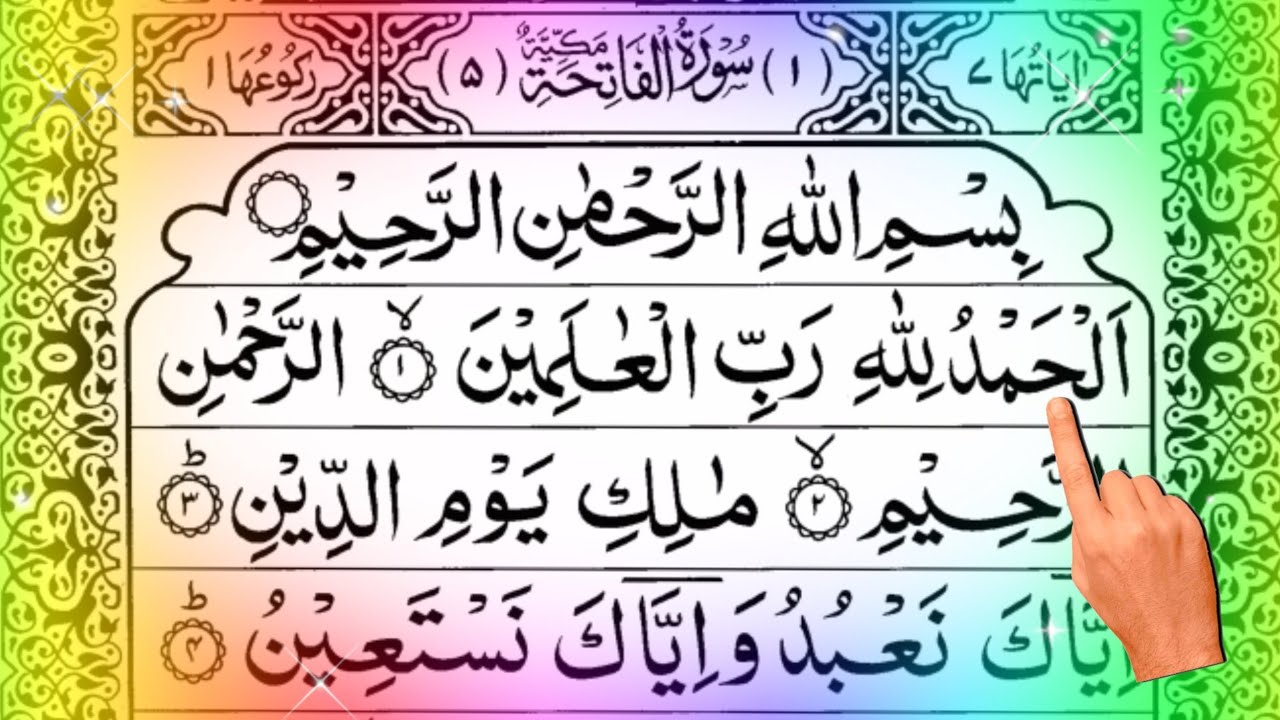 اٰیَاتُهَا ۷ (۱) سُوْرَةُ الْفَاتِحَةِ مَكِّیَّةٌ (۵) رُكُوْعُهَا ۱
بِسْمِ اللهِ الرَّحْمٰنِ الرَّحِیْمِ
اَلْحَمْدُ لِلّٰهِ رَبِّ الْعٰلَمِیْنَ ۙ﴿۱﴾ الرَّحْمٰنِ
الرَّحِیْمِ ۙ﴿۲﴾ مٰلِكِ یَوْمِ الدِّیْنِ ؕ﴿۳﴾
اِیَّاكَ نَعْبُدُ وَ اِیَّاكَ نَسْتَعِیْنُ ؕ﴿۴﴾